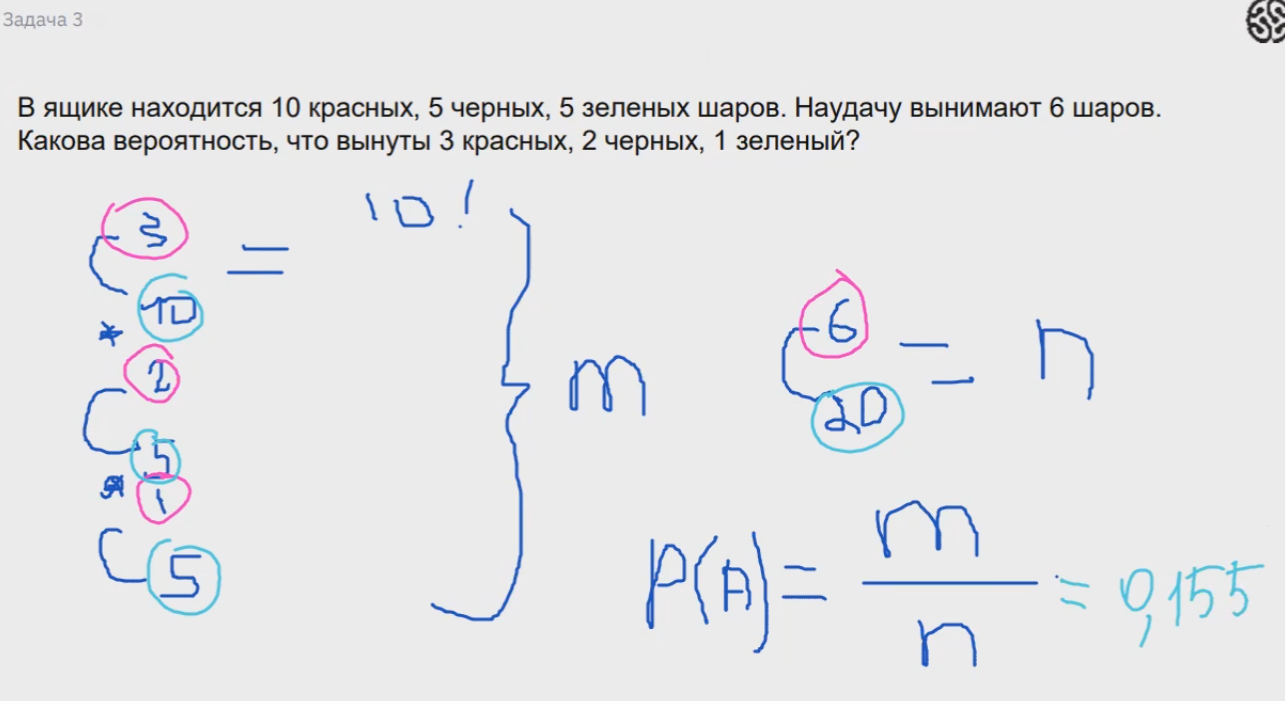 Задача 3
В ящике находится 10 красных, 5 черных, 5 зеленых шаров. Наудачу вынимают 6 шаров.
Какова вероятность, что вынуты 3 красных, 2 черных, 1 зеленый?
C 3 10 = 10!
* C 2 5
* C 1 5
} m
C 6 20 = n
P(A) = m / n = 0,155